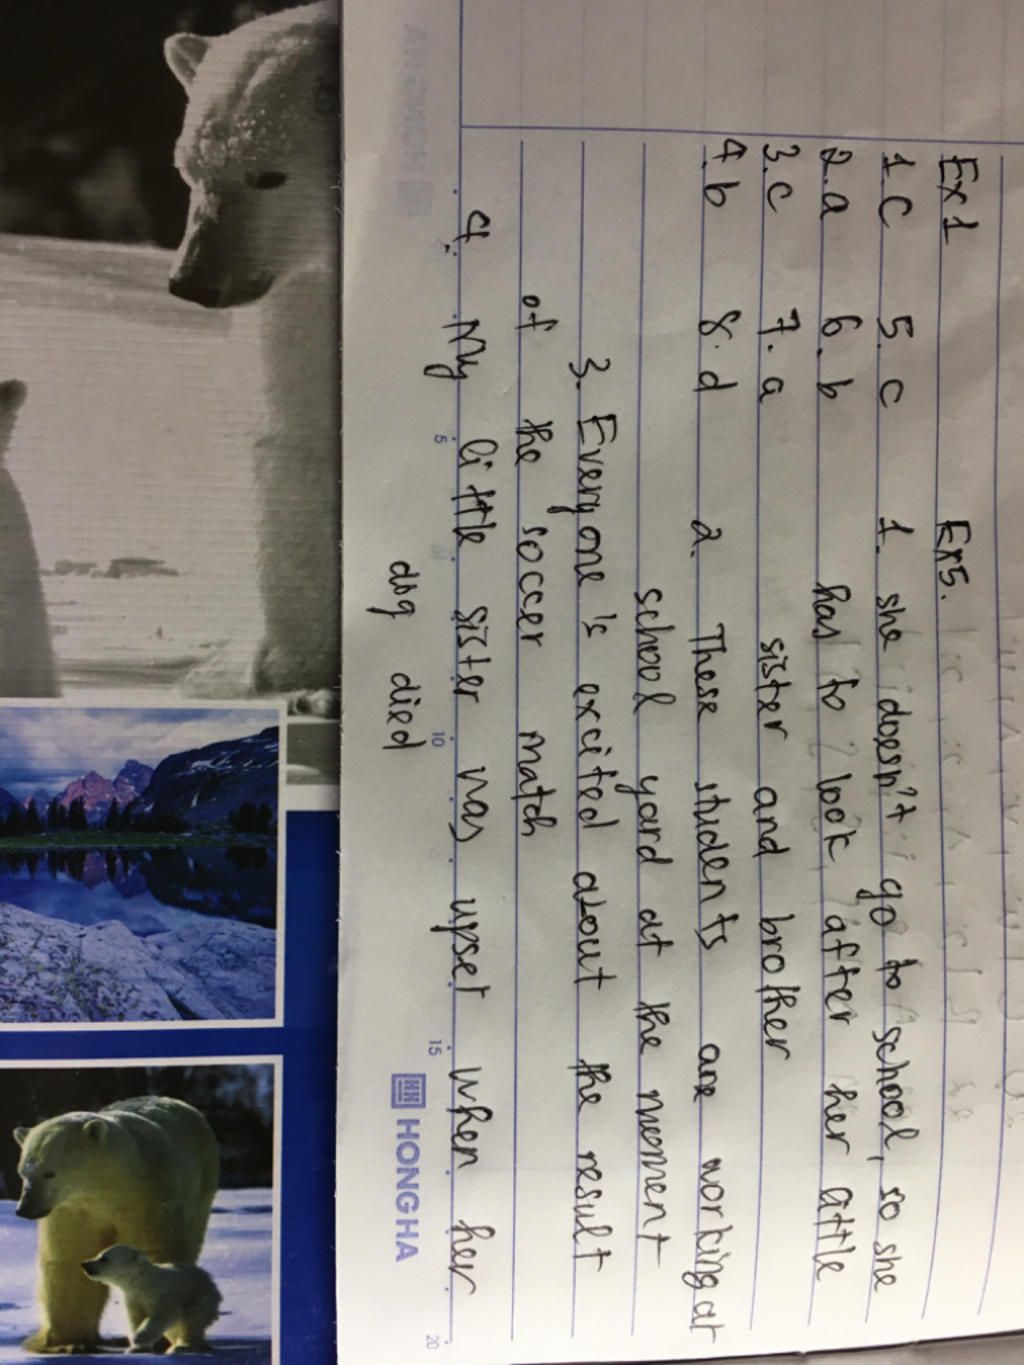 Ex1 Ex5.
1.C 5. c 1. she doesn't go to school, so she
2.a 6. b has to look after her attle
3.c 7. a sister and brother
4.b 8. d 2. These students are working at
school yard at the moment
3. Everyone's excited about the result
of the soccer match
4. My little sister was upset when her
dog died
5 10 15 20
HONGHA